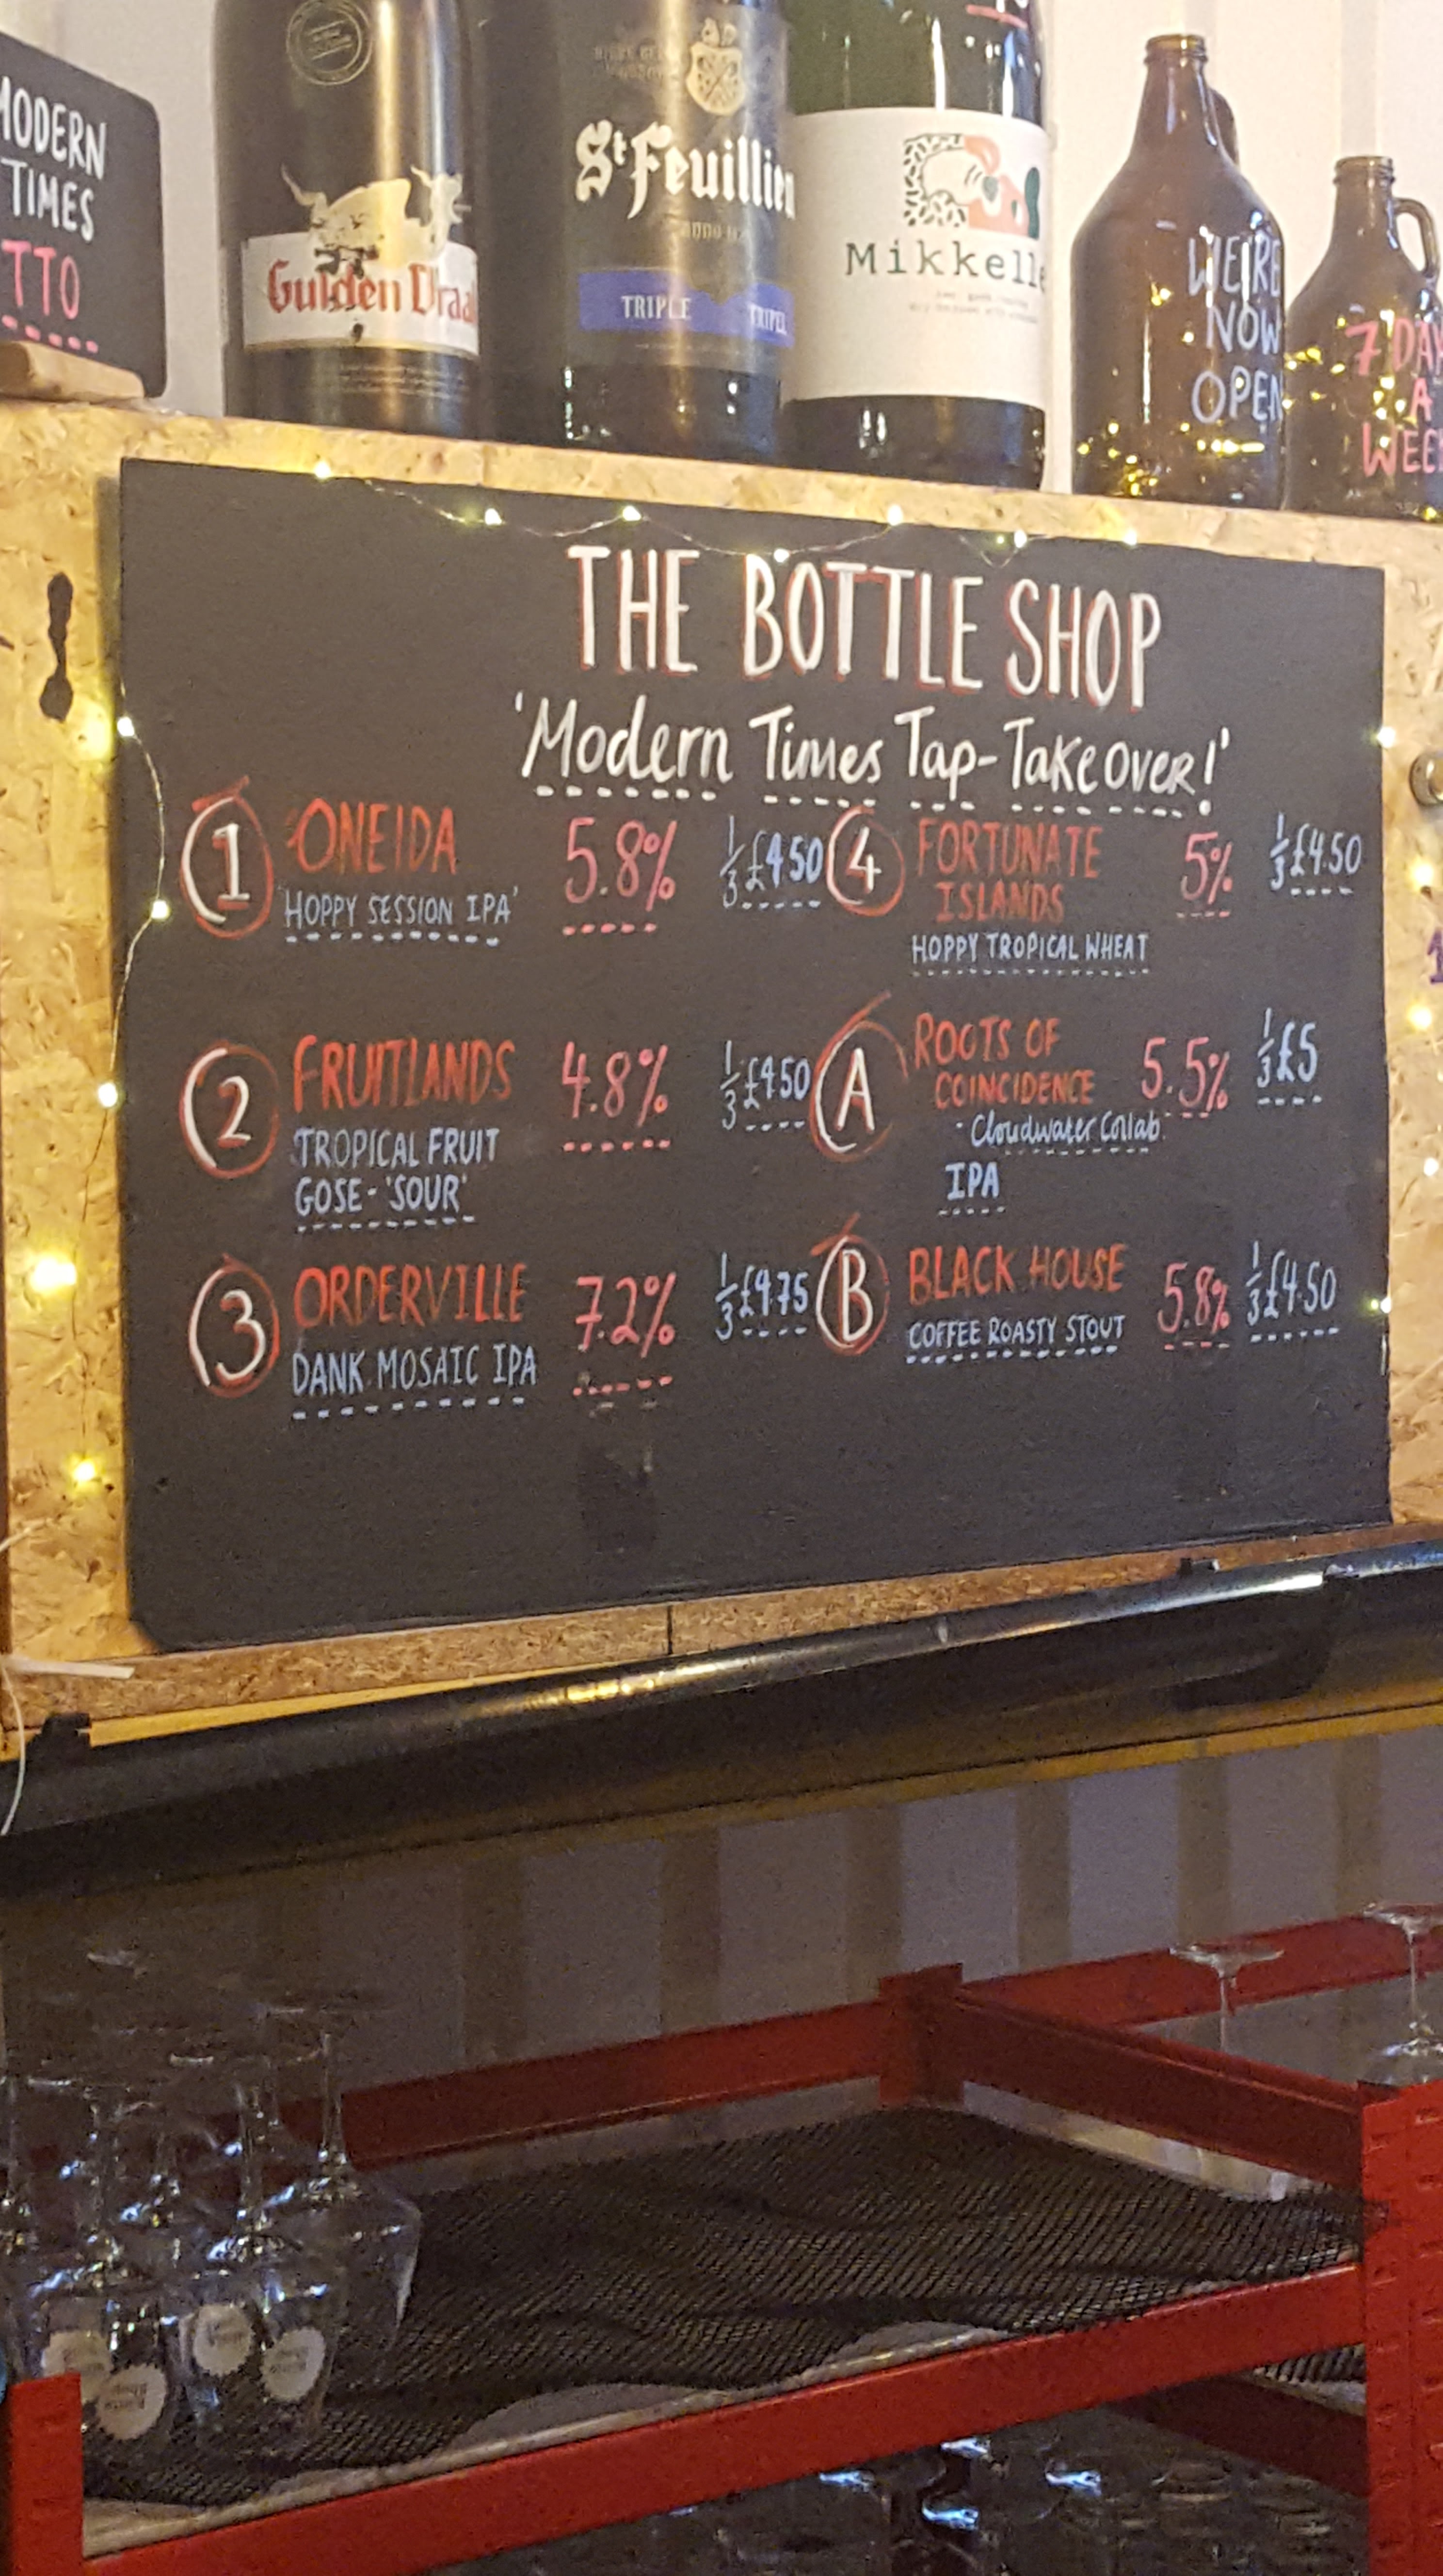 MODERN
TIMES
TTO
Gulden Draa
St Feuillien
TRIPLE TRIPEL
Mikkelle
WE'RE
NOW
OPEN
7 DAY
A
WEE
THE BOTTLE SHOP
'Modern Times Tap-Takeover!'
1 ONEIDA 5.8% 1/3 £4.50
'HOPPY SESSION IPA'
2 FRUITLANDS 4.8% 1/3 £4.50
TROPICAL FRUIT
GOSE - 'SOUR'
3 ORDERVILLE 7.2% 1/3 £4.75
DANK MOSAIC IPA
4 FORTUNATE 5% 1/3 £4.50
ISLANDS
HOPPY TROPICAL WHEAT
A ROOTS OF 5.5% 1/3 £5
COINCIDENCE
- Cloudwater Collab.
IPA
B BLACK HOUSE 5.8% 1/3 £4.50
COFFEE ROASTY STOUT